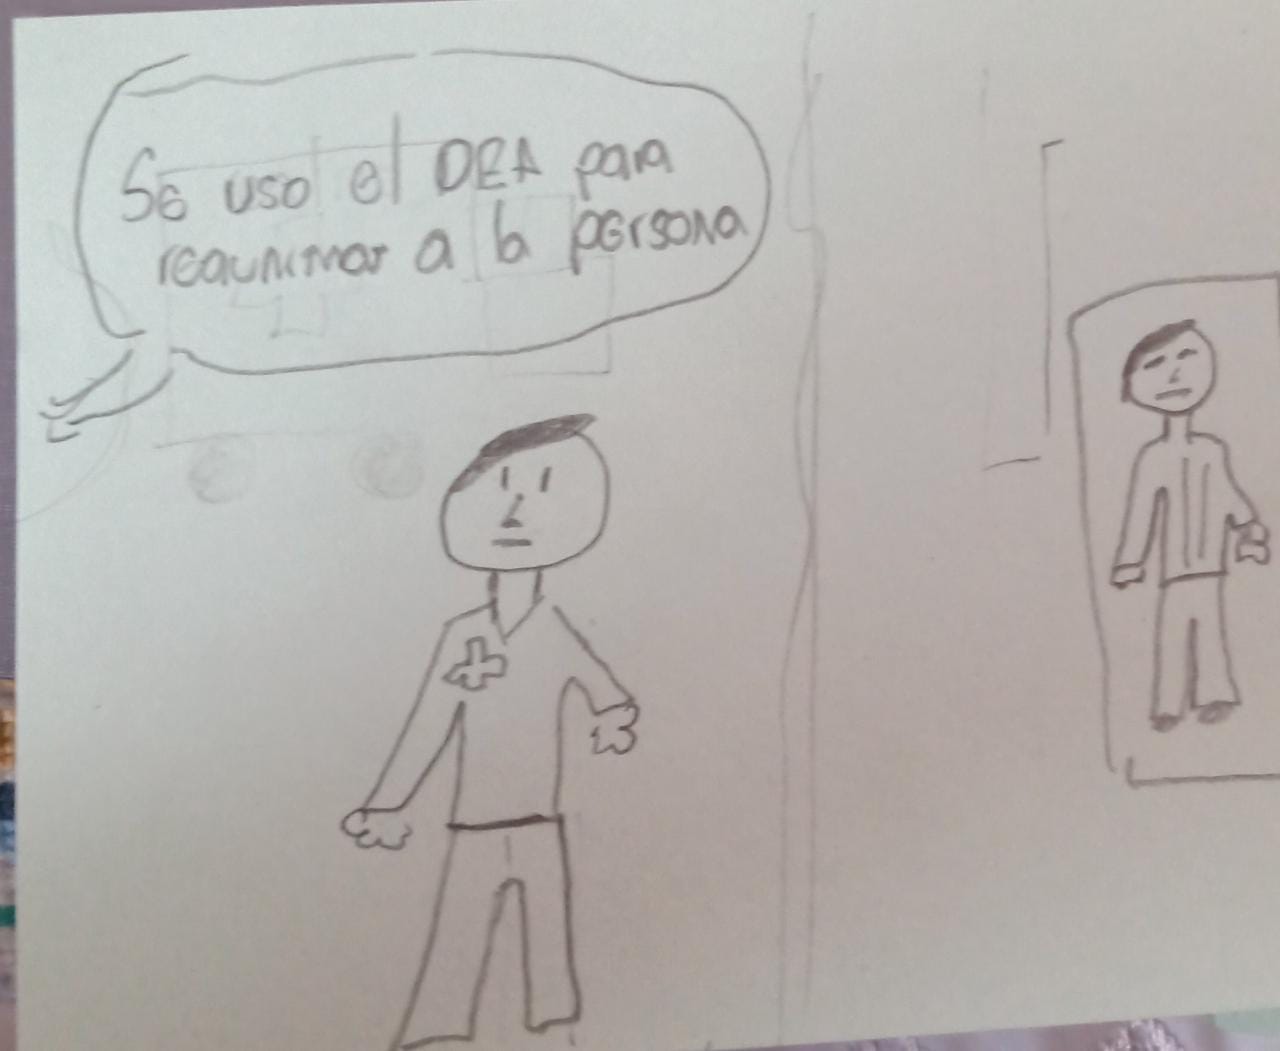 Se uso el DEA para
reaunimar a la persona